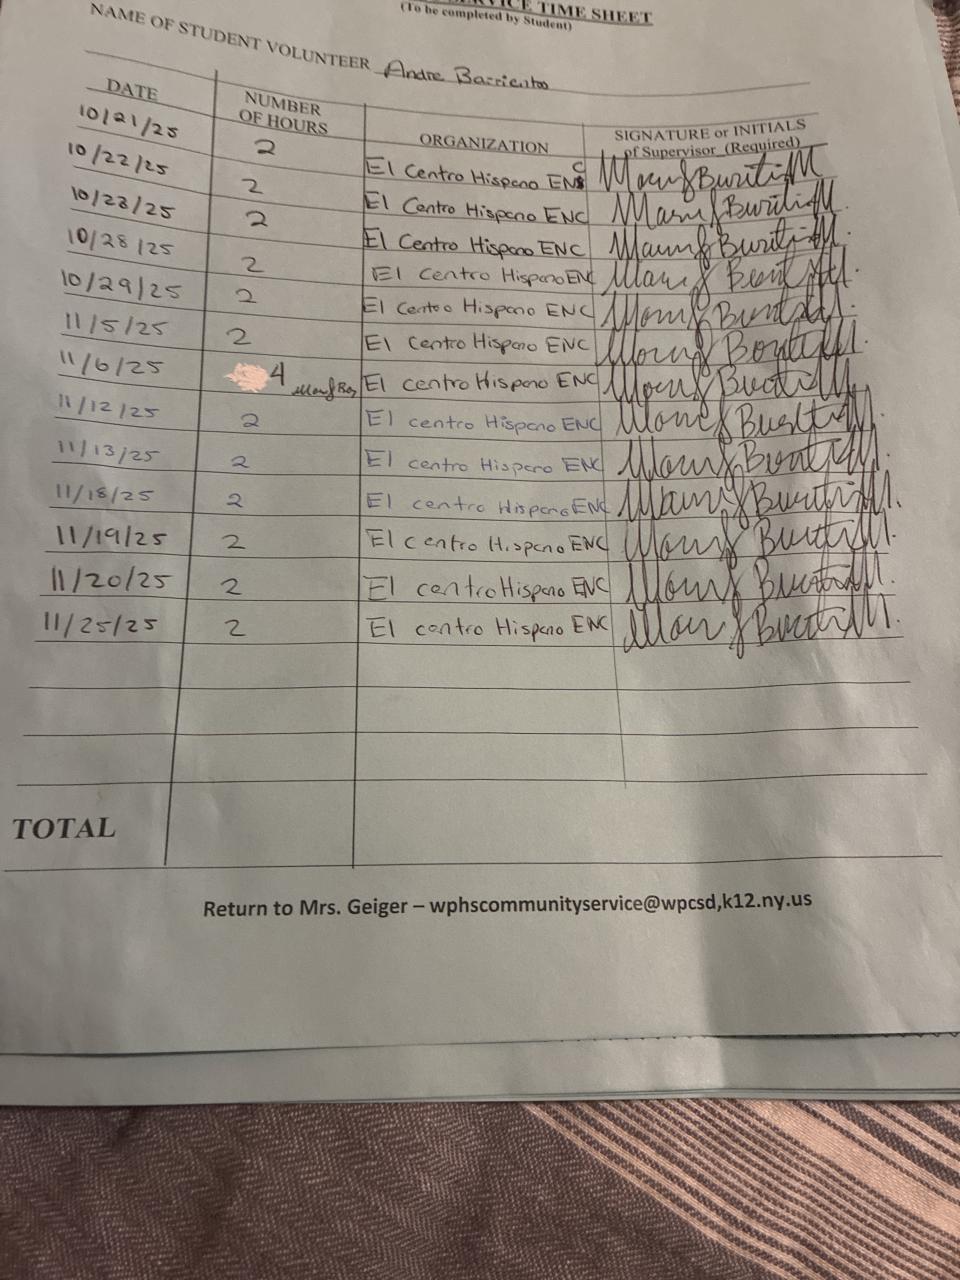 SERVICE TIME SHEET
(To be completed by Student)
NAME OF STUDENT VOLUNTEER Andre Barrientos
DATE NUMBER OF HOURS ORGANIZATION SIGNATURE or INITIALS of Supervisor (Required)
10/21/25 2 El Centro Hispano ENC
10/22/25 2 El Centro Hispano ENC
10/23/25 2 El Centro Hispano ENC
10/28/25 2 El Centro Hispano ENC
10/29/25 2 El Centro Hispano ENC
11/5/25 2 El Centro Hispano ENC
11/6/25 4 El centro Hispano ENC
11/12/25 2 El centro Hispano ENC
11/13/25 2 El centro Hispano ENC
11/18/25 2 El centro Hispano ENC
11/19/25 2 El centro Hispano ENC
11/20/25 2 El centro Hispano ENC
11/25/25 2 El centro Hispano ENC
TOTAL
Return to Mrs. Geiger – wphscommunityservice@wpcsd,k12.ny.us